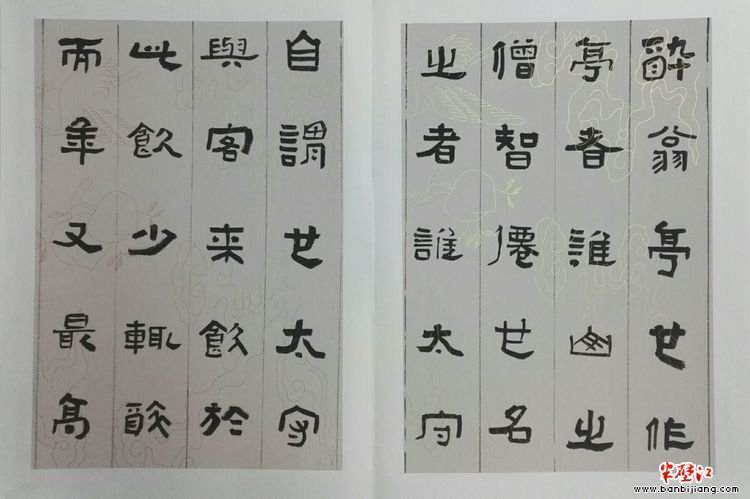 醉翁亭也作
亭者誰山之
僧智僊也名
之者誰太守
自謂也太守
與客来飲於
此飲少輒醉
而年又最高
半壁江
www.banbijiang.com